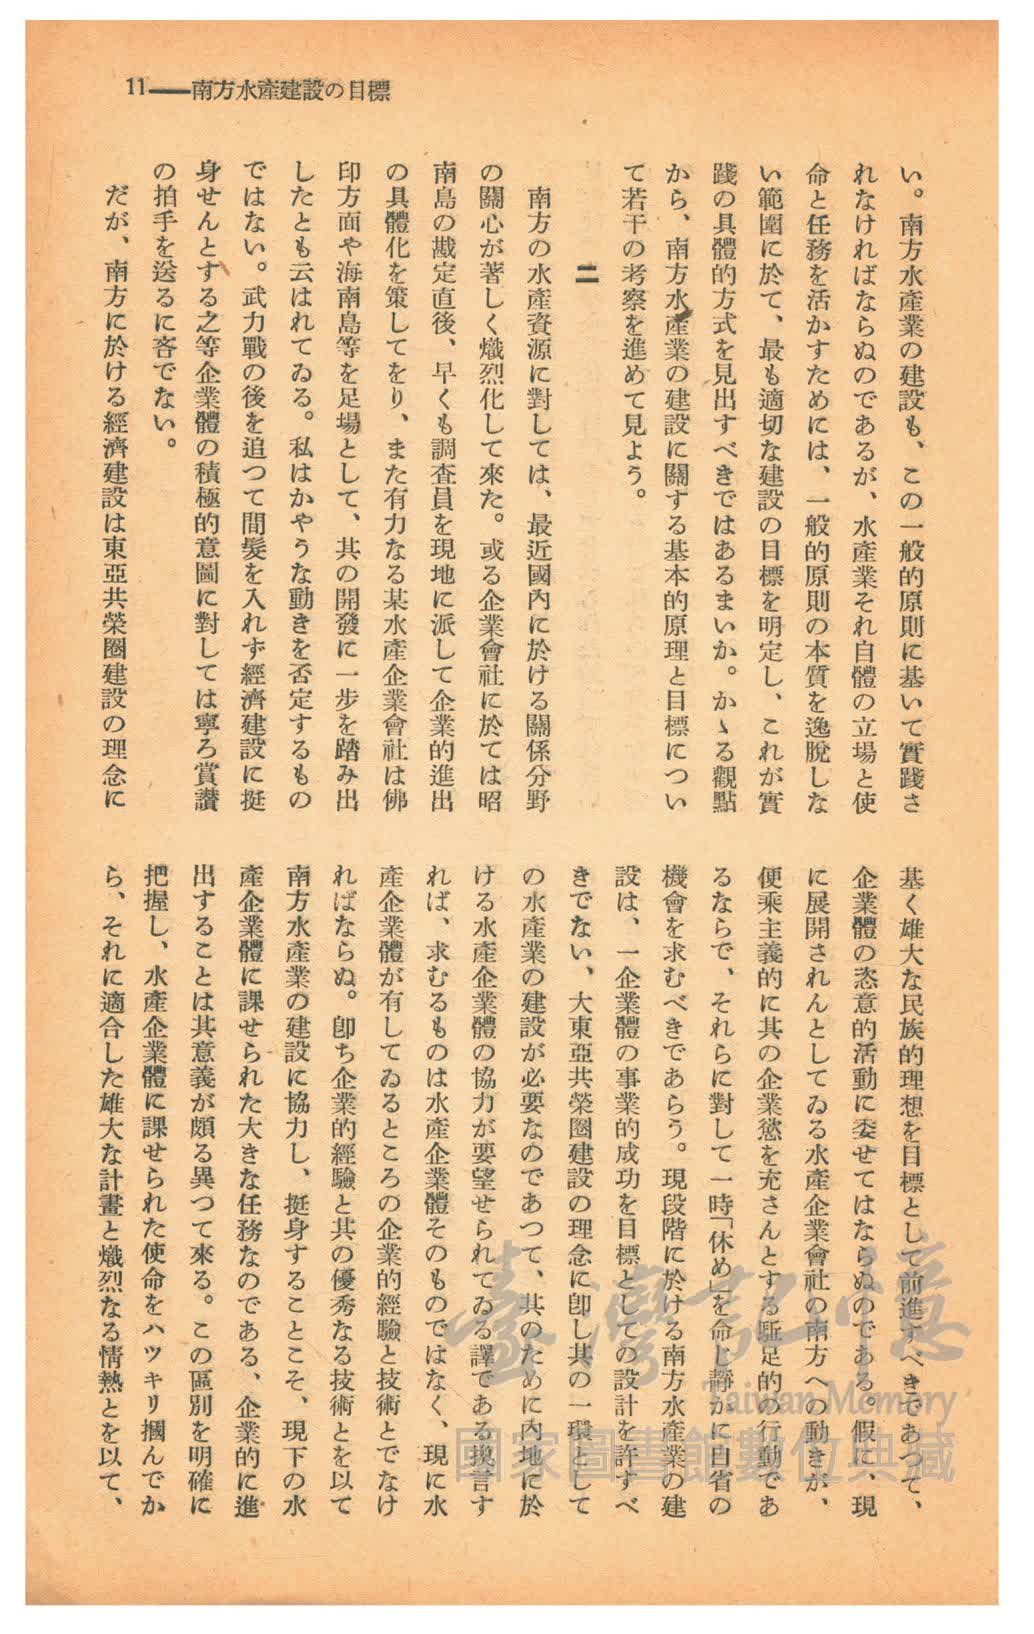 11――南方水產建設の目標
い。南方水產業の建設も、この一般的原則に基いて實踐さ
れなければならぬのであるが、水產業それ自體の立場と使
命と任務を活かすためには、一般的原則の本質を逸脫しな
い範圍に於て、最も適切な建設の目標を明定し、これが實
踐の具體的方式を見出すべきではあるまいか。かゝる觀點
から、南方水產業の建設に關する基本的原理と目標につい
て若干の考察を進めて見よう。
二
南方の水產資源に對しては、最近國內に於ける關係分野
の關心が著しく熾烈化して來た。或る企業會社に於ては昭
南島の戡定直後、早くも調査員を現地に派して企業的進出
の具體化を策してをり、また有力なる某水產企業會社は佛
印方面や海南島等を足場として、其の開發に一步を踏み出
したとも云はれてゐる。私はかやうな動きを否定するもの
ではない。武力戰の後を追つて間髮を入れず經濟建設に挺
身せんとする之等企業體の積極的意圖に對しては寧ろ賞讚
の拍手を送るに吝でない。
だが、南方に於ける經濟建設は東亞共榮圈建設の理念に
基く雄大な民族的理想を目標として前進すべきであつて、
企業體の恣意的活動に委せてはならぬのである。假に、現
に展開されんとしてゐる水產企業會社の南方への動きが、
便乘主義的に其の企業慾を充さんとする駈足的の行動であ
るならで、それらに對して一時「休め」を命じ靜かに自省の
機會を求むべきであらう。現段階に於ける南方水產業の建
設は、一企業體の事業的成功を目標としての設計を許すべ
きでない、大東亞共榮圈建設の理念に卽し其の一環として
の水產業の建設が必要なのであつて、其のために內地に於
ける水產企業體の協力が要望せられてゐる譯である換言す
れば、求むるものは水產企業體そのものではなく、現に水
產企業體が有してゐるところの企業的經驗と技術とでなけ
ればならぬ。卽ち企業的經驗と其の優秀なる技術とを以て
南方水產業の建設に協力し、挺身することこそ、現下の水
產企業體に課せられた大きな任務なのである、企業的に進
出することは其意義が頗る異つて來る。この區別を明確に
把握し、水產企業體に課せられた使命をハツキリ摑んでか
ら、それに適合した雄大な計畫と熾烈なる情熱とを以て、
臺灣記憶
Taiwan Memory
國家圖書館數位典藏